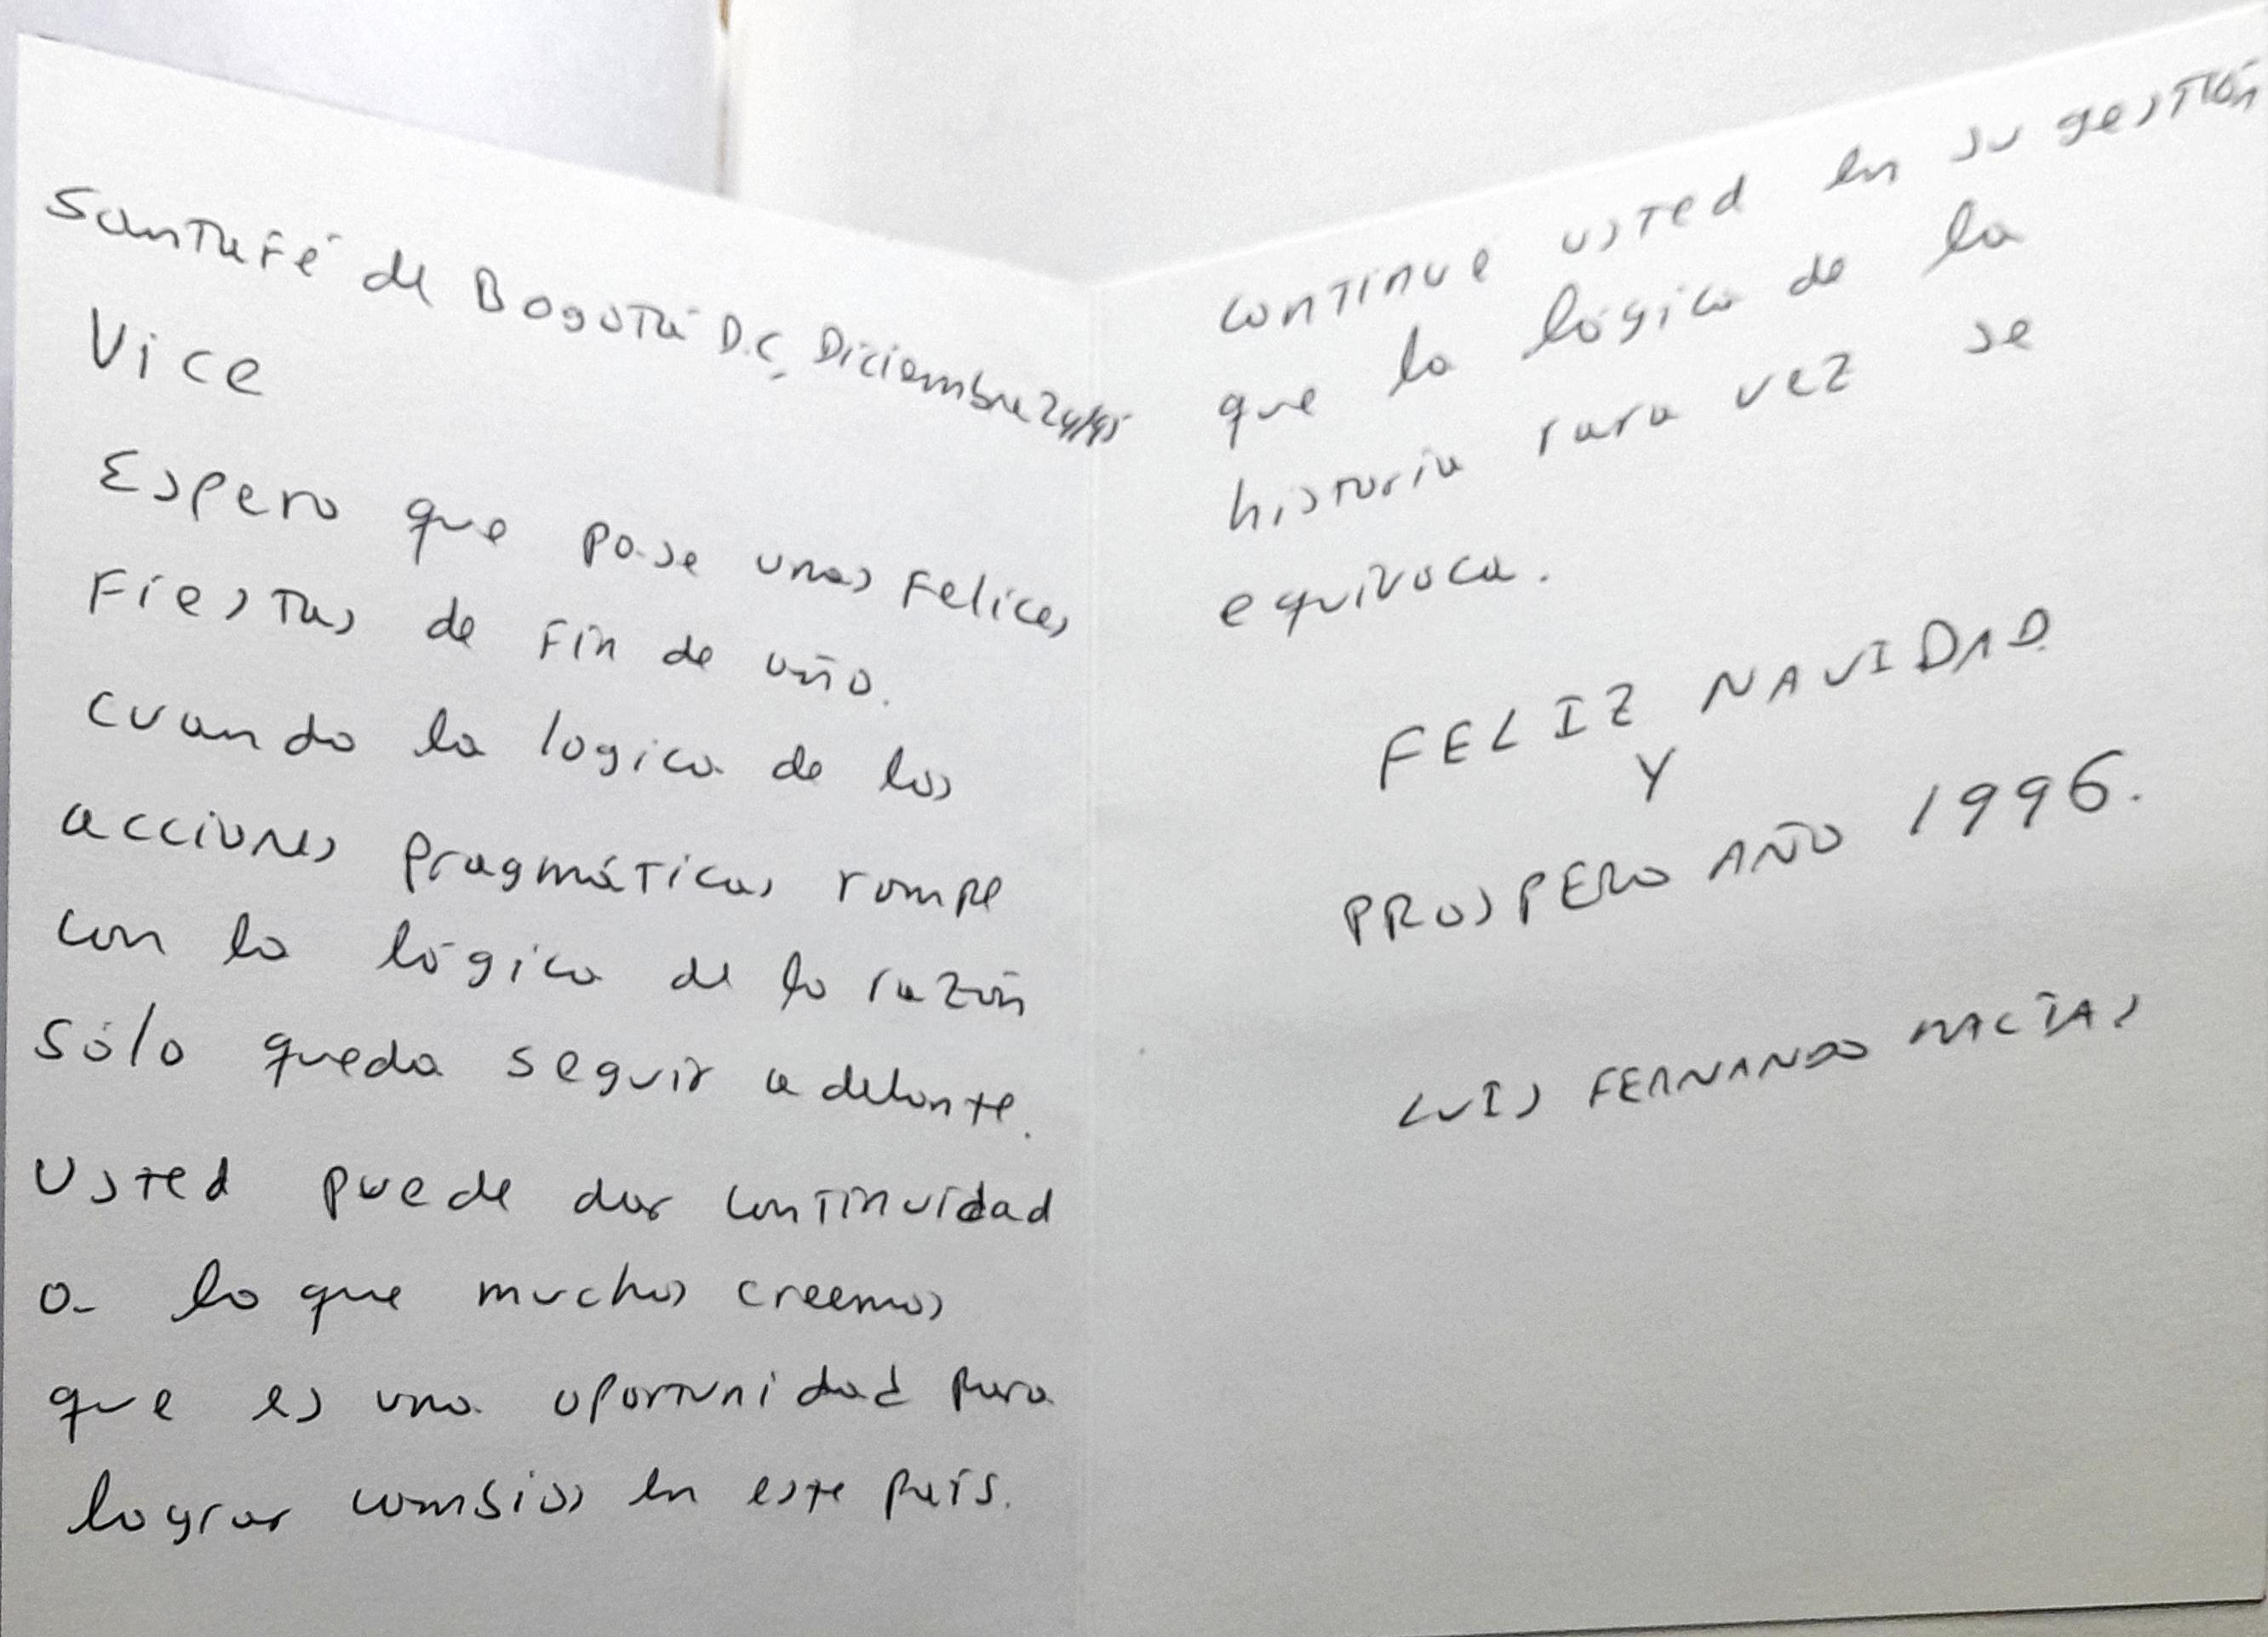 Santafé de Bogotá D.C, Diciembre 24/95
Vice
Espero que pase unas felices
Fiestas de Fin de año.
cuando la logica de las
acciones pragmáticas rompe
con la lógica de la razón
sólo queda seguir adelante.
Usted puede dar continuidad
a lo que muchos creemos
que es una oportunidad para
lograr cambios en este país.
continue usted en su gestión
que la lógica de la
historia rara vez se
equivoca.
FELIZ NAVIDAD
Y
PROSPERO AÑO 1996.
LUIS FERNANDO MACÍAS